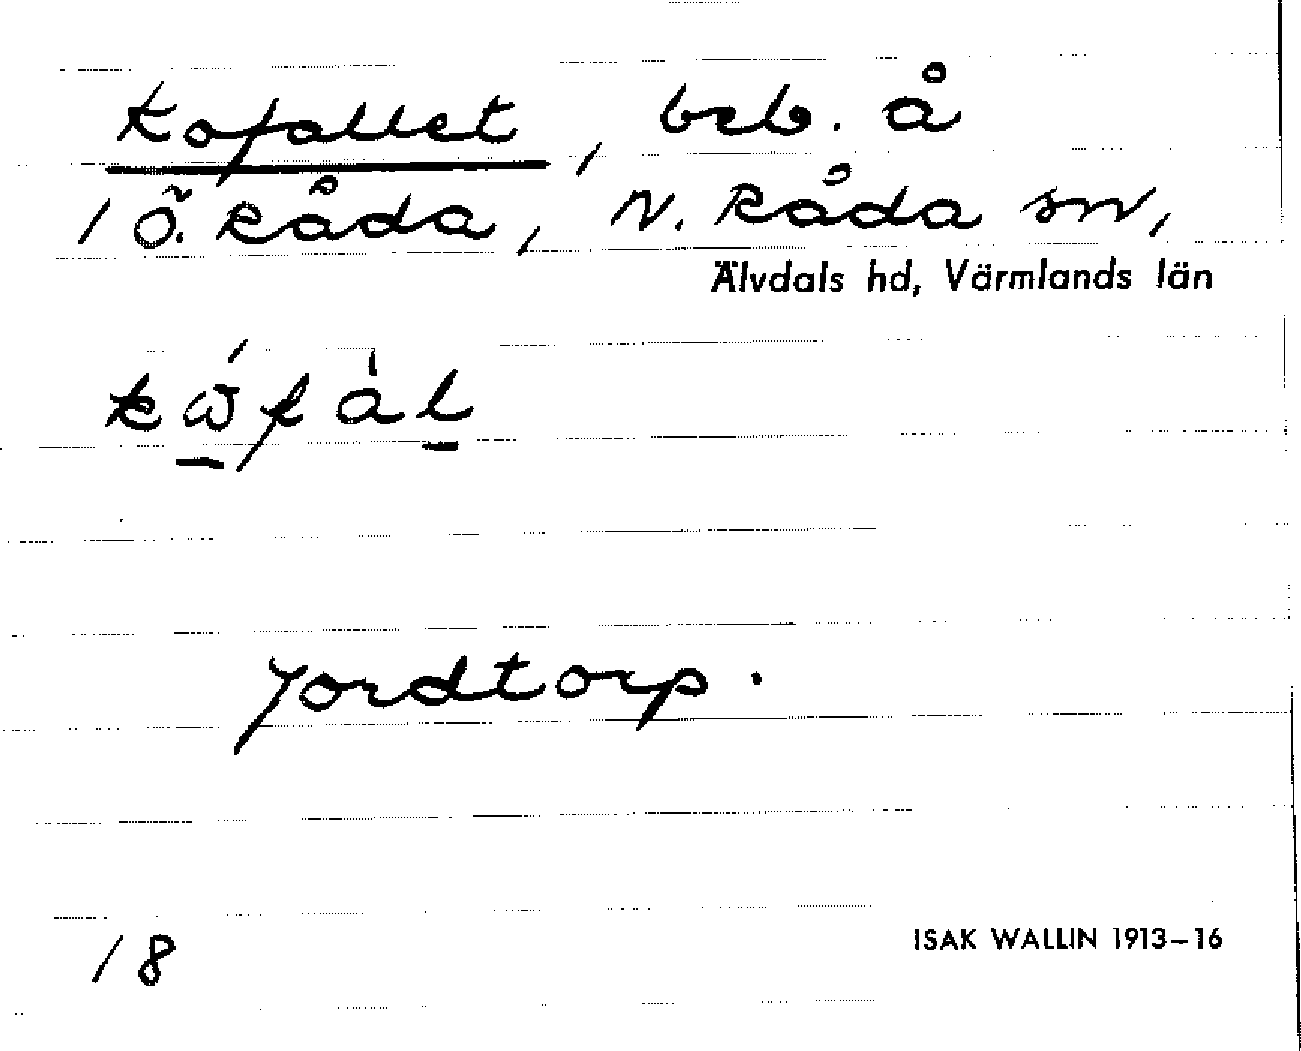 Kofallet, beb. å
1 Ö. Råda, N. Råda sn,
Älvdals hd, Värmlands län
Jordtorp.
18
ISAK WALLIN 1913–16